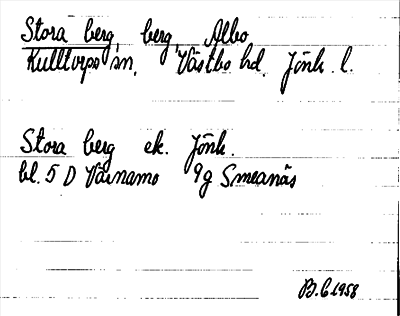 Stora berg, berg, Albo
Kulltorps sn, Västbo hd. Jönk. l.
Stora berg ek. Jönk.
bl. 5 D Värnamo 9g Smeanäs
B.C. 1958